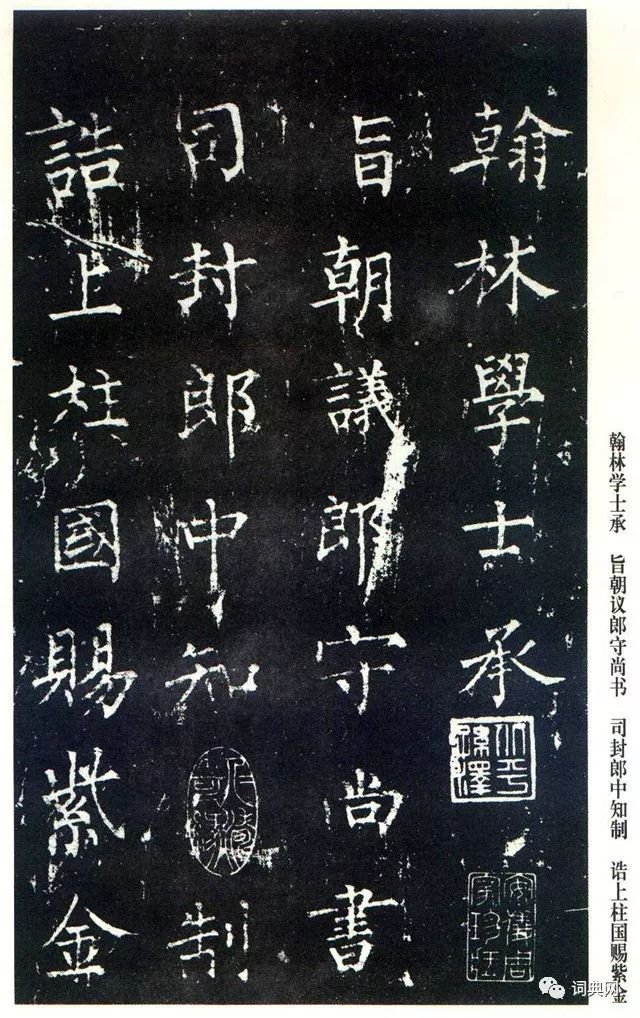 翰林學士承
旨朝議郎守尚書
司封郎中知制
誥上柱國賜紫金
翰林学士承　旨朝议郎守尚书　司封郎中知制　诰上柱国赐紫金
词典网